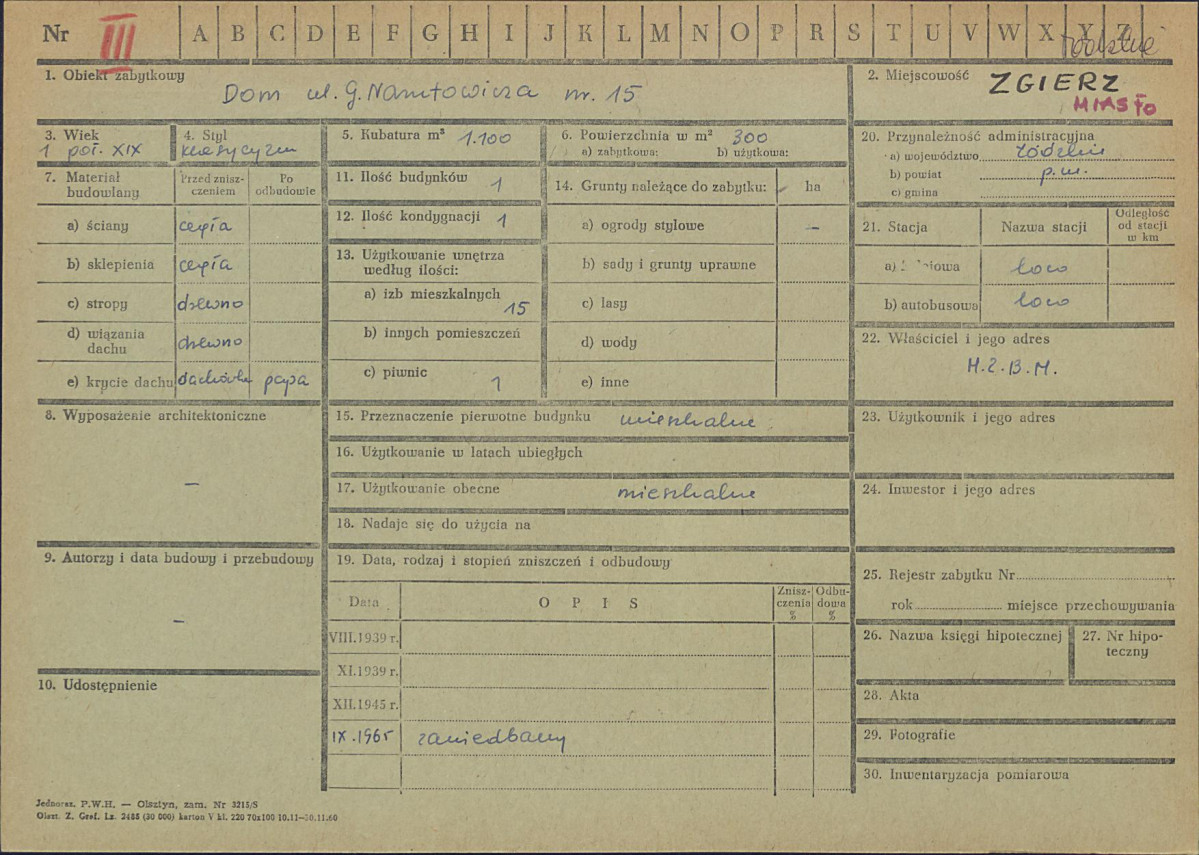 Nr III A B C D E F G H I J K L M N O P R S T U V W X Y Z łódzkie
1. Obiekt zabytkowy
Dom ul. G. Narutowicza nr. 15
2. Miejscowość ZGIERZ
MIASTO
3. Wiek
1 poł. XIX
4. Styl
klasycyzm
5. Kubatura m³ 1.100
6. Powierzchnia w m² 300
a) zabytkowa: b) użytkowa:
7. Materiał budowlany
Przed zniszczeniem
Po odbudowie
a) ściany cegła
b) sklepienia cegła
c) stropy drewno
d) wiązania dachu drewno
e) krycie dachu dachówka papa
8. Wyposażenie architektoniczne
—
9. Autorzy i data budowy i przebudowy
—
10. Udostępnienie
11. Ilość budynków 1
12. Ilość kondygnacji 1
13. Użytkowanie wnętrza
według ilości:
a) izb mieszkalnych
15
b) innych pomieszczeń
c) piwnic 1
14. Grunty należące do zabytku: ha
a) ogrody stylowe —
b) sady i grunty uprawne
c) lasy
d) wody
e) inne
15. Przeznaczenie pierwotne budynku mieszkalne
16. Użytkowanie w latach ubiegłych
17. Użytkowanie obecne mieszkalne
18. Nadaje się do użycia na
19. Data, rodzaj i stopień zniszczeń i odbudowy
Data O P I S Zniszczenia % Odbudowa %
VIII.1939 r.
XI.1939 r.
XII.1945 r.
IX.1965 zaniedbany
20. Przynależność administracyjna
a) województwo łódzkie
b) powiat p.m.
c) gmina
21. Stacja Nazwa stacji Odległość od stacji w km
a) loco
b) autobusowa loco
22. Właściciel i jego adres
M.Z.B.M.
23. Użytkownik i jego adres
24. Inwestor i jego adres
25. Rejestr zabytku Nr
rok miejsce przechowywania
26. Nazwa księgi hipotecznej
27. Nr hipoteczny
28. Akta
29. Fotografie
30. Inwentaryzacja pomiarowa
Jednoraz. P.W.H. — Olsztyn, zam. Nr 3215/S
Olszt. Z. Graf. Lz. 2485 (30 000) karton V kl. 220 70x100 10.11—30.11.60